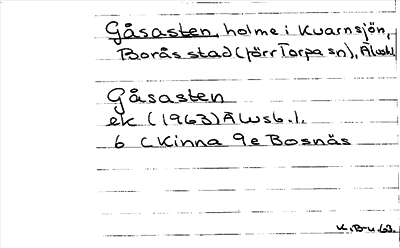 Gåsasten, holme i Kvarnsjön,
Borås stad (förr Torpa sn), Älvsbl.
Gåsasten
ek (1963) Älvsb. l.
6 C Kinna 9e Bosnäs
K.B-u. 63.